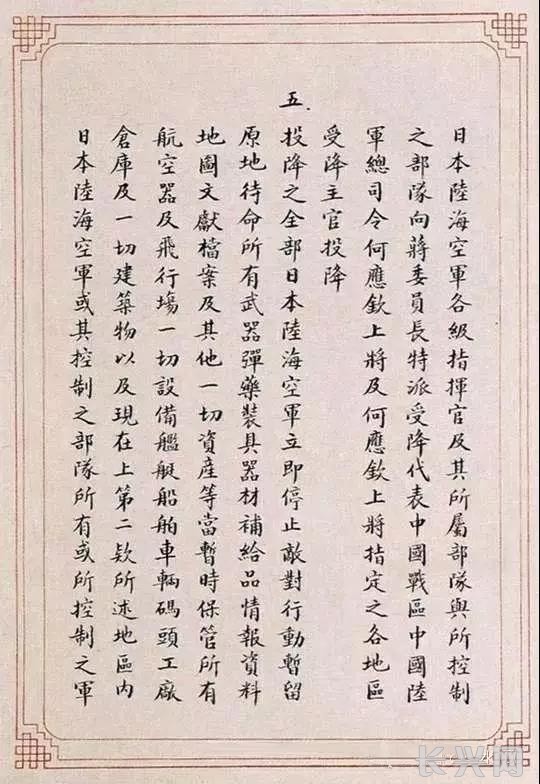 日本陸海空軍各級指揮官及其所屬部隊與所控制
之部隊向蔣委員長特派受降代表中國戰區中國陸
軍總司令何應欽上將及何應欽上將指定之各地區
受降主官投降
五.投降之全部日本陸海空軍立即停止敵對行動暫留
原地待命所有武器彈藥裝具器材補給品情報資料
地圖文獻檔案及其他一切資產等當暫時保管所有
航空器及飛行場一切設備艦艇船舶車輛碼頭工廠
倉庫及一切建築物以及現在上第二欵所述地區內
日本陸海空軍或其控制之部隊所有或所控制之軍
长兴网